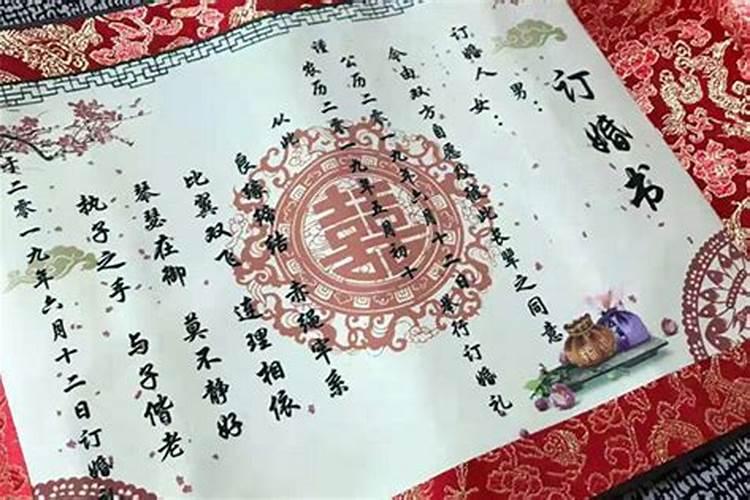 订婚书
男：
订婚人女：
今由双方自愿及征彼此长辈之同意
谨
公历二零一九年六月十二日举行订婚礼
农历二零一九年五月初十
从此
良缘缔结 赤绳牢系
比翼双飞 连理相依
琴瑟在御 莫不静好
执子之手 与子偕老
于二零一九年六月十二日订婚